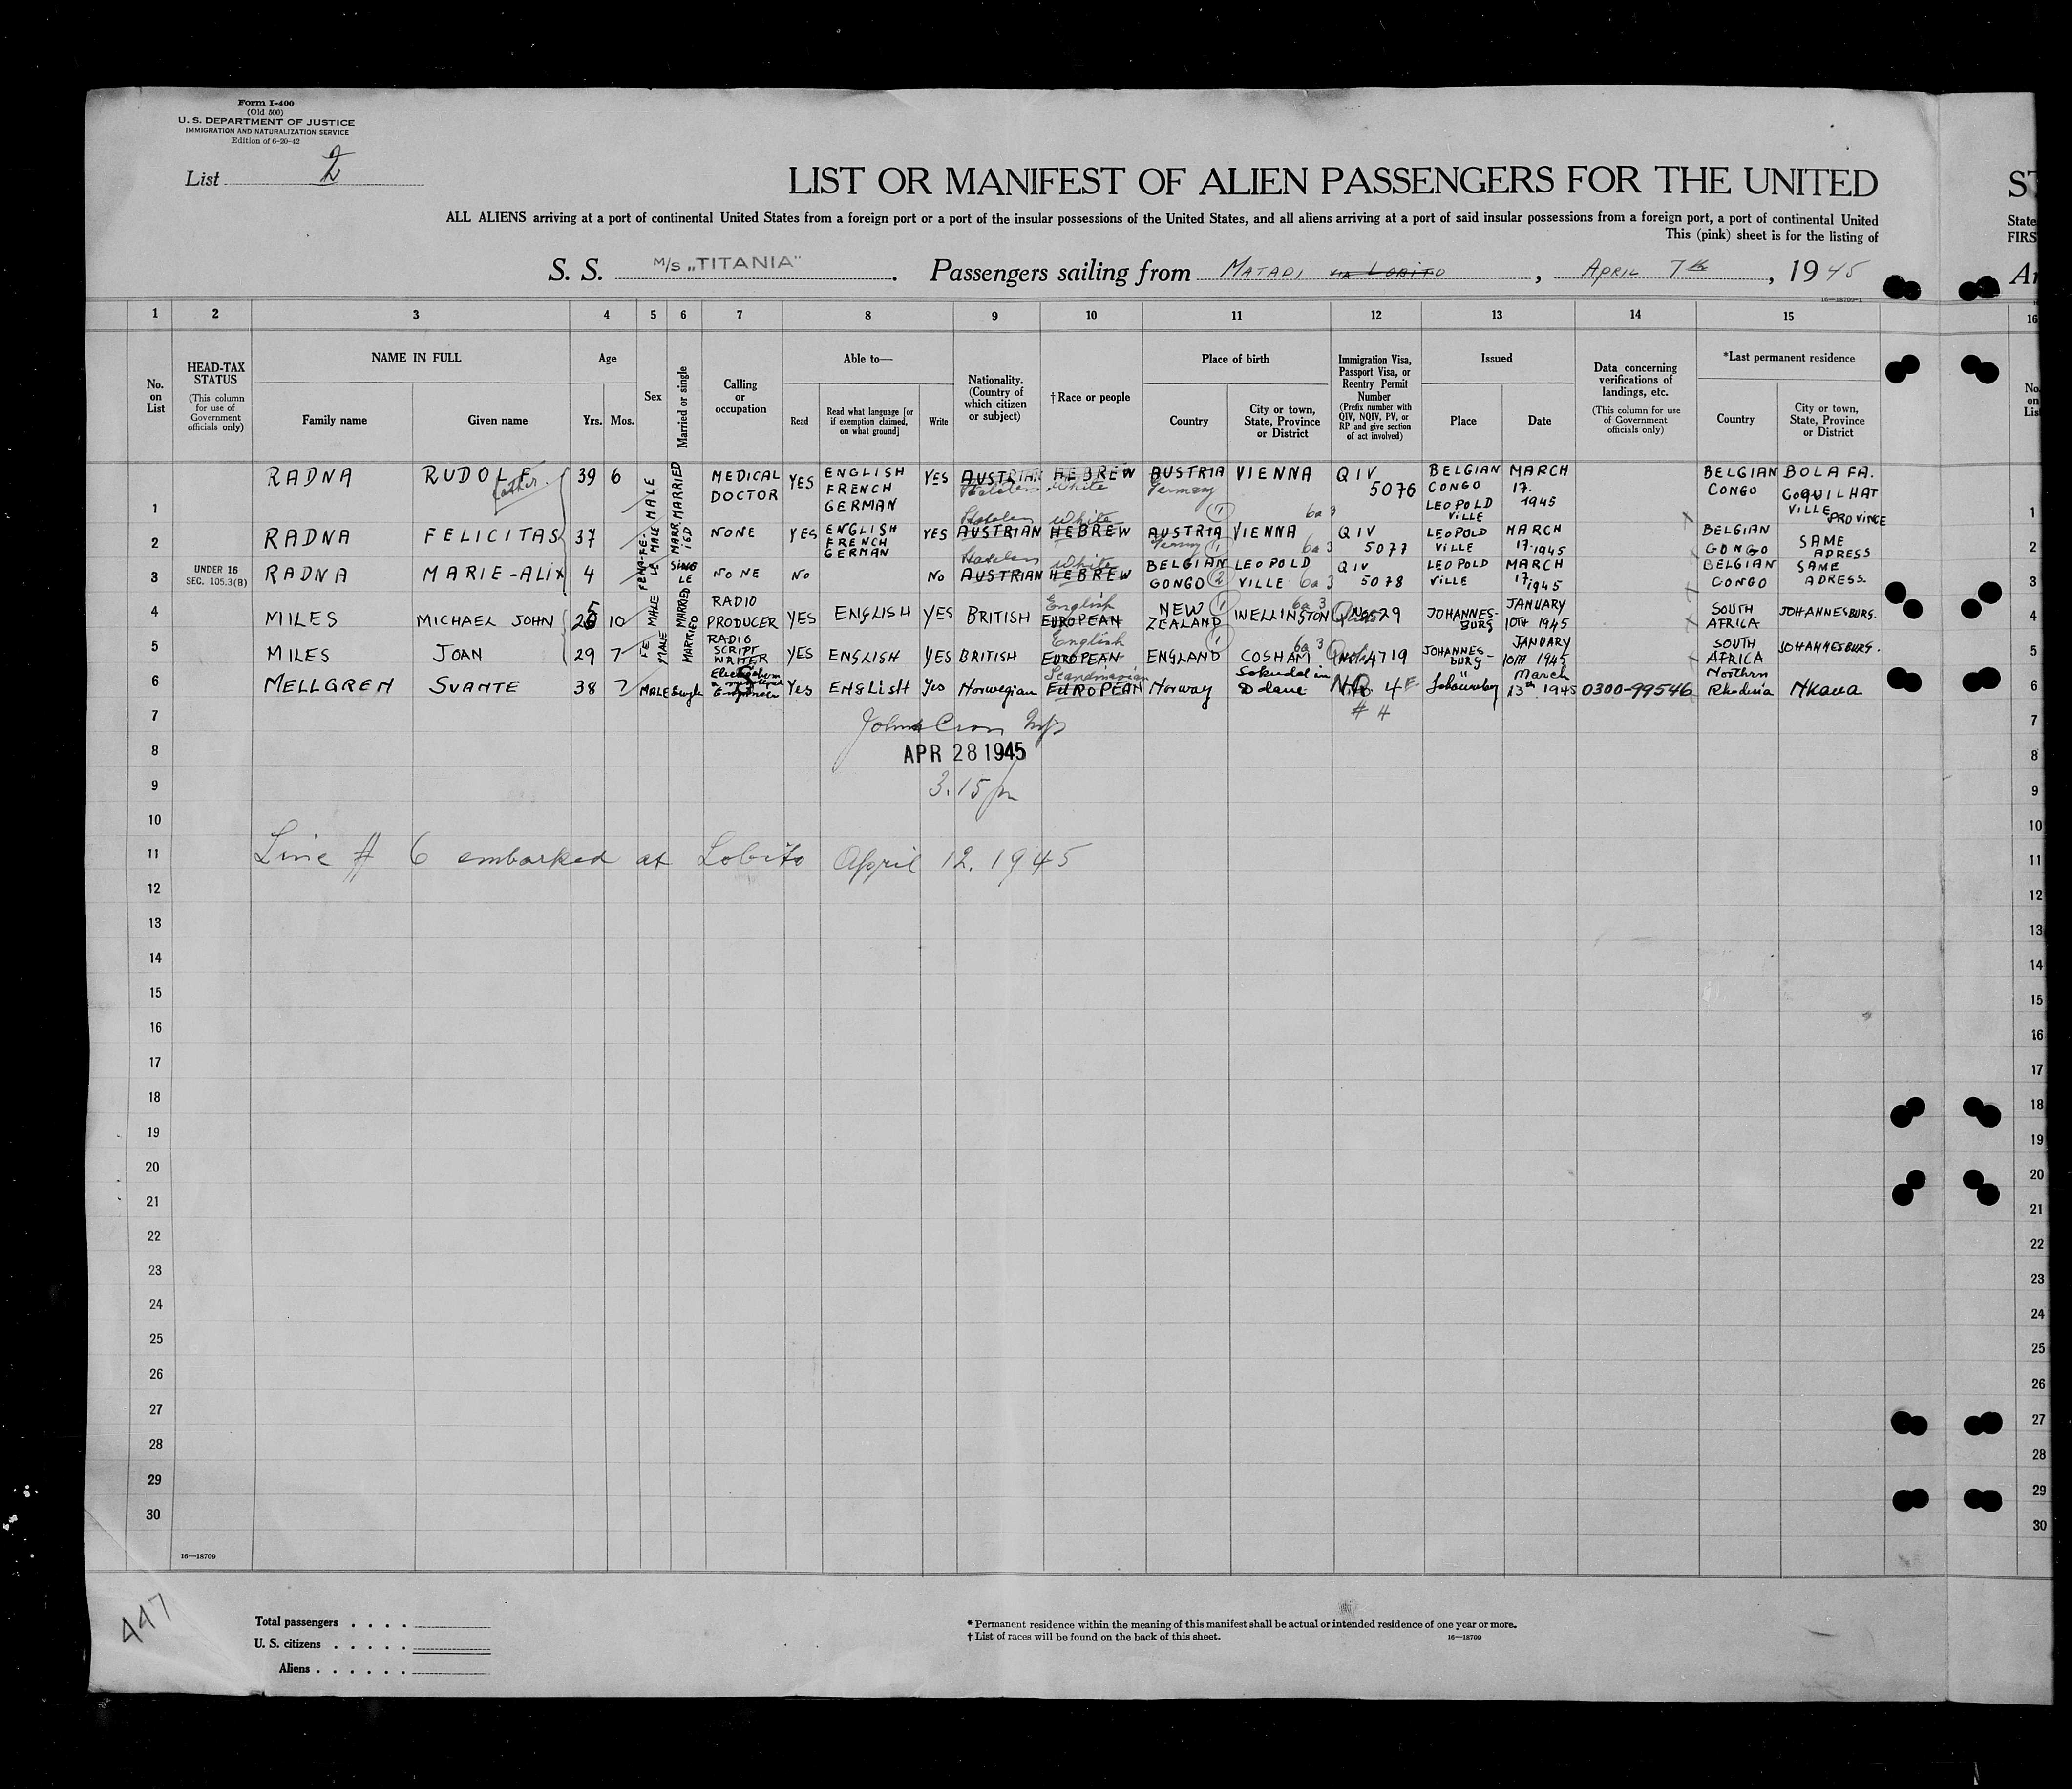 Form I-400
(Old 500)
U. S. DEPARTMENT OF JUSTICE
IMMIGRATION AND NATURALIZATION SERVICE
Edition of 6-20-42
List 2
LIST OR MANIFEST OF ALIEN PASSENGERS FOR THE UNITED
ST
ALL ALIENS arriving at a port of continental United States from a foreign port or a port of the insular possessions of the United States, and all aliens arriving at a port of said insular possessions from a foreign port, a port of continental United
State
This (pink) sheet is for the listing of
FIRS
S. S. M/S „TITANIA". Passengers sailing from MATADI VIA LOBITO, APRIL 7th, 1945
16—18709-1
1 2 3 4 5 6 7 8 9 10 11 12 13 14 15 16
No. on List
HEAD-TAX STATUS
(This column for use of Government officials only)
NAME IN FULL
Family name
Given name
Age
Yrs.
Mos.
Sex
Married or single
Calling or occupation
Able to—
Read
Read what language [or if exemption claimed, on what ground]
Write
Nationality. (Country of which citizen or subject)
†Race or people
Place of birth
Country
City or town, State, Province or District
Immigration Visa, Passport Visa, or Reentry Permit Number
(Prefix number with QIV, NQIV, PV, or RP and give section of act involved)
Issued
Place
Date
Data concerning verifications of landings, etc.
(This column for use of Government officials only)
*Last permanent residence
Country
City or town, State, Province or District
No. on List
1 RADNA RUDOLF father 39 6 MALE MARRIED MEDICAL DOCTOR YES ENGLISH FRENCH GERMAN YES AUSTRIAN Stateless HEBREW White AUSTRIA Germany VIENNA QIV 5076 BELGIAN CONGO LEOPOLD VILLE MARCH 17. 1945 BELGIAN CONGO BOLAFA. COQUILHAT VILLE PROVINCE 1
2 RADNA FELICITAS 37 FEMALE MARRIED NONE YES ENGLISH FRENCH GERMAN YES Stateless AUSTRIAN White HEBREW AUSTRIA Germany VIENNA 6a3 QIV 5077 LEOPOLD VILLE MARCH 17. 1945 BELGIAN CONGO SAME ADRESS 2
3 UNDER 16 SEC. 105.3(B) RADNA MARIE-ALIX 4 FEMALE SINGLE NONE NO NO Stateless AUSTRIAN White HEBREW BELGIAN CONGO LEOPOLD VILLE 6a3 QIV 5078 LEOPOLD VILLE MARCH 17 1945 BELGIAN CONGO SAME ADRESS. 3
4 MILES MICHAEL JOHN 25 10 MALE MARRIED RADIO PRODUCER YES ENGLISH YES BRITISH English EUROPEAN NEW ZEALAND WELLINGTON 6a3 JOHANNESBURG JANUARY 10TH 1945 SOUTH AFRICA JOHANNESBURG. 4
5 MILES JOAN 29 7 FEMALE MARRIED RADIO SCRIPT WRITER YES ENGLISH YES BRITISH English EUROPEAN ENGLAND COSHAM 6a3 4719 JOHANNESBURG JANUARY 10TH 1945 SOUTH AFRICA JOHANNESBURG. 5
6 MELLGREN SVANTE 38 7 MALE Single Engineer Yes ENGLISH Yes Norwegian Scandinavian EUROPEAN Norway Sokndal in Dalane 4E # 4 March 13th 1945 0300-99546 Northern Rhodesia Nkana 6
7
8 APR 28 1945
9 3.15 pm
10
11 Line # 6 embarked at Lobito April 12. 1945
12
13
14
15
16
17
18
19
20
21
22
23
24
25
26
27
28
29
30
16—18709
447
Total passengers . . . .
U. S. citizens . . . . .
Aliens . . . . . .
* Permanent residence within the meaning of this manifest shall be actual or intended residence of one year or more.
† List of races will be found on the back of this sheet. 16—18709